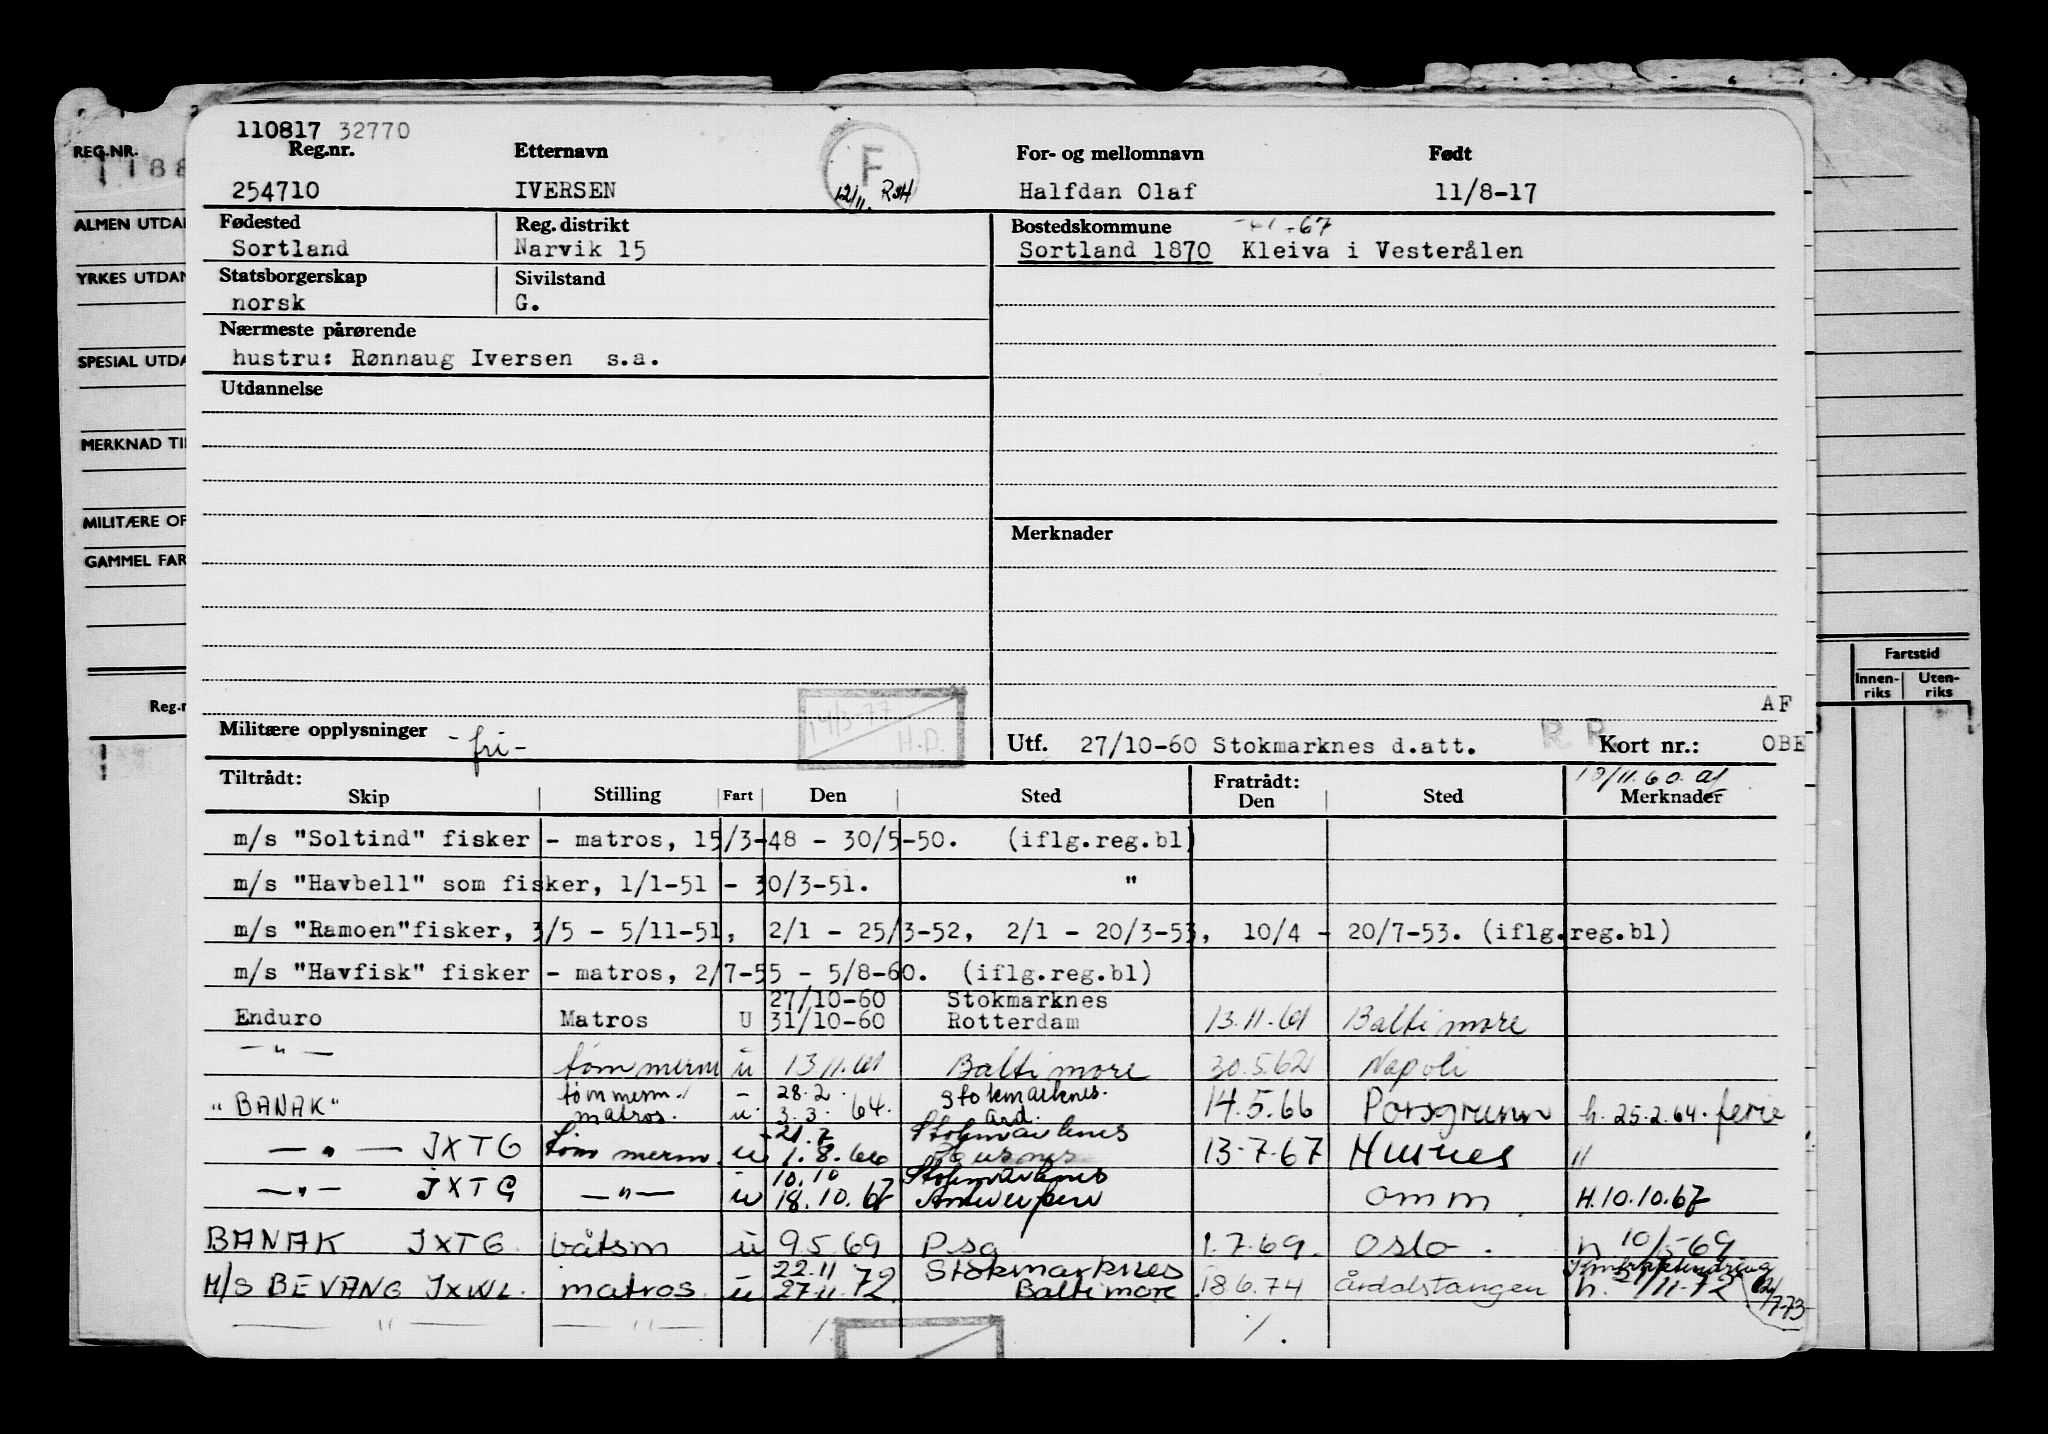 110817 32770
REG.NR.
Reg.nr. Etternavn F For- og mellomnavn Født
254710 IVERSEN 12/11. Halfdan Olaf 11/8-17
ALMEN UTDA
Fødested Reg. distrikt Bostedskommune -67
Sortland Narvik 15 Sortland 1870 Kleiva i Vesterålen
YRKES UTDAN
Statsborgerskap Sivilstand
norsk G.
Nærmeste pårørende
SPESIAL UTDA
hustru: Rønnaug Iversen s.a.
Utdannelse
MERKNAD TI
MILITÆRE OP
Merknader
GAMMEL FAR
Fartstid
Innen-riks Uten-riks
Reg.n
14/3-77
H.D.
AF
Militære opplysninger -fri- Utf. 27/10-60 Stokmarknes d.att. R R. Kort nr.: OBE
Tiltrådt: Fratrådt: 10/11.60.
Skip Stilling Fart Den Sted Den Sted Merknader
m/s "Soltind" fisker - matros, 15/3-48 - 30/5-50. (iflg.reg.bl)
m/s "Havbell" som fisker, 1/1-51 - 30/3-51. "
m/s "Ramoen"fisker, 3/5 - 5/11-51, 2/1 - 25/3-52, 2/1 - 20/3-53, 10/4 - 20/7-53. (iflg.reg.bl)
m/s "Havfisk" fisker - matros, 2/7-55 - 5/8-60. (iflg.reg.bl)
27/10-60 Stokmarknes
Enduro Matros U 31/10-60 Rotterdam 13.11.61 Baltimore
— " — tømmerm u 13.11.61 Baltimore 30.5.62 Napoli
tømmerm. - 28.2. Stokmarknes.
"BANAK" matros. u. 3.3. 64. Ard. 14.5.66 Porsgrunn h. 25.2.64. ferie
- 21.7 Stokmarknes
— " — JXTG tømmerm. u 1.8.66 Husnes 13.7.67 Husnes "
- 10.10 Stokmarknes
— " — JXTG — " — u 18.10.67 Antwerpen omm. H.10.10.67
BANAK JXTG. båtsm u 9.5.69 Psg 1.7.69. Oslo. h 10/5-69
22.11 Stokmarknes
M/S BEVANG JXWL. matros. u 27.11.72 Baltimore 18.6.74 Årdalstangen h. 21/11-72
— " — — " — /. /. 7-73